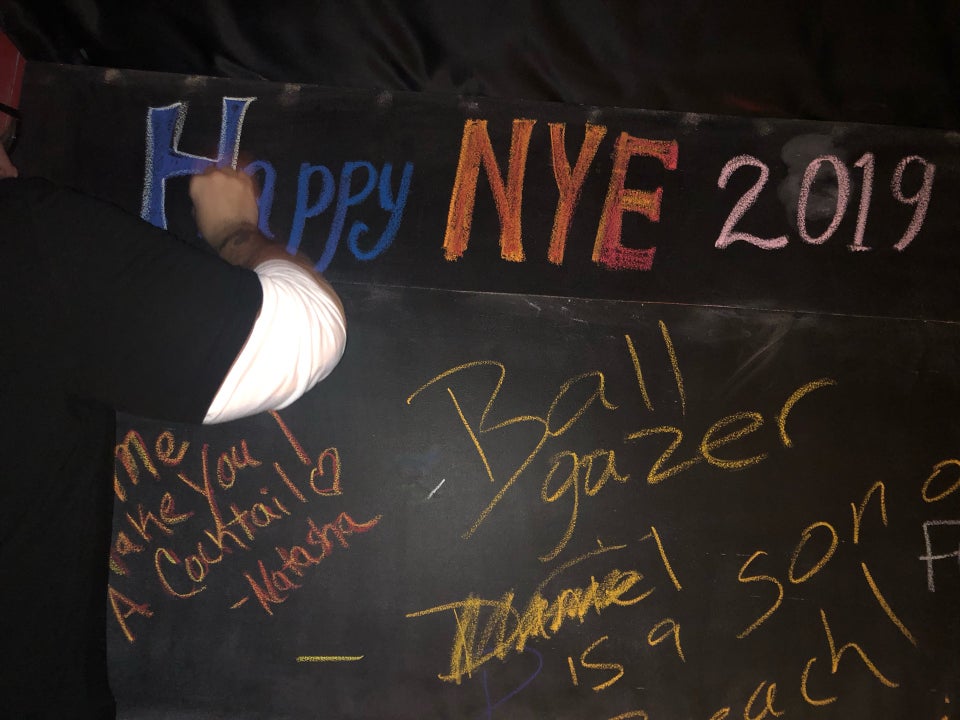 Happy NYE 2019
Ball
gazer
me
Make You
A Cocktail!♡
-Natasha
Daniel
is a son